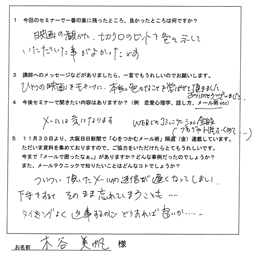 1 今回のセミナーで一番印象に残ったところ、良かったところは何ですか？
映画の観かた、切り口のヒントを色々示して
いただいた事がよかったです
3 講師へのメッセージなどがありましたら、一言でもうれしいのでお願いします。
ひとつの映画をもとに、本当に色々なことを学ばせて頂きました
ありがとうございました
4 今後セミナーで聞きたい内容はありますか？（例　恋愛心理学、話し方、メール術etc)
メールは気になります　WEBでのコミュニケーション全般
5 １１月３０日より、大阪日日新聞で「心をつかむメール術」隔週（金）連載しています。
ただいま資料を集めておりますので、ご協力をいただけたらとてもうれしいです。
今まで「メールで困ったなぁ。」がありますか？どんな事例だったのでしょうか？
また、メールテクニックで知りたいことはどんなコトでしょうか？
ついつい頂いたメールの返信が遅くなってしまい、
下手すると そのまま忘れてしまうことも…
タイミングよく返事するのに どうすれば良いか…
お名前 木谷 美帆 様